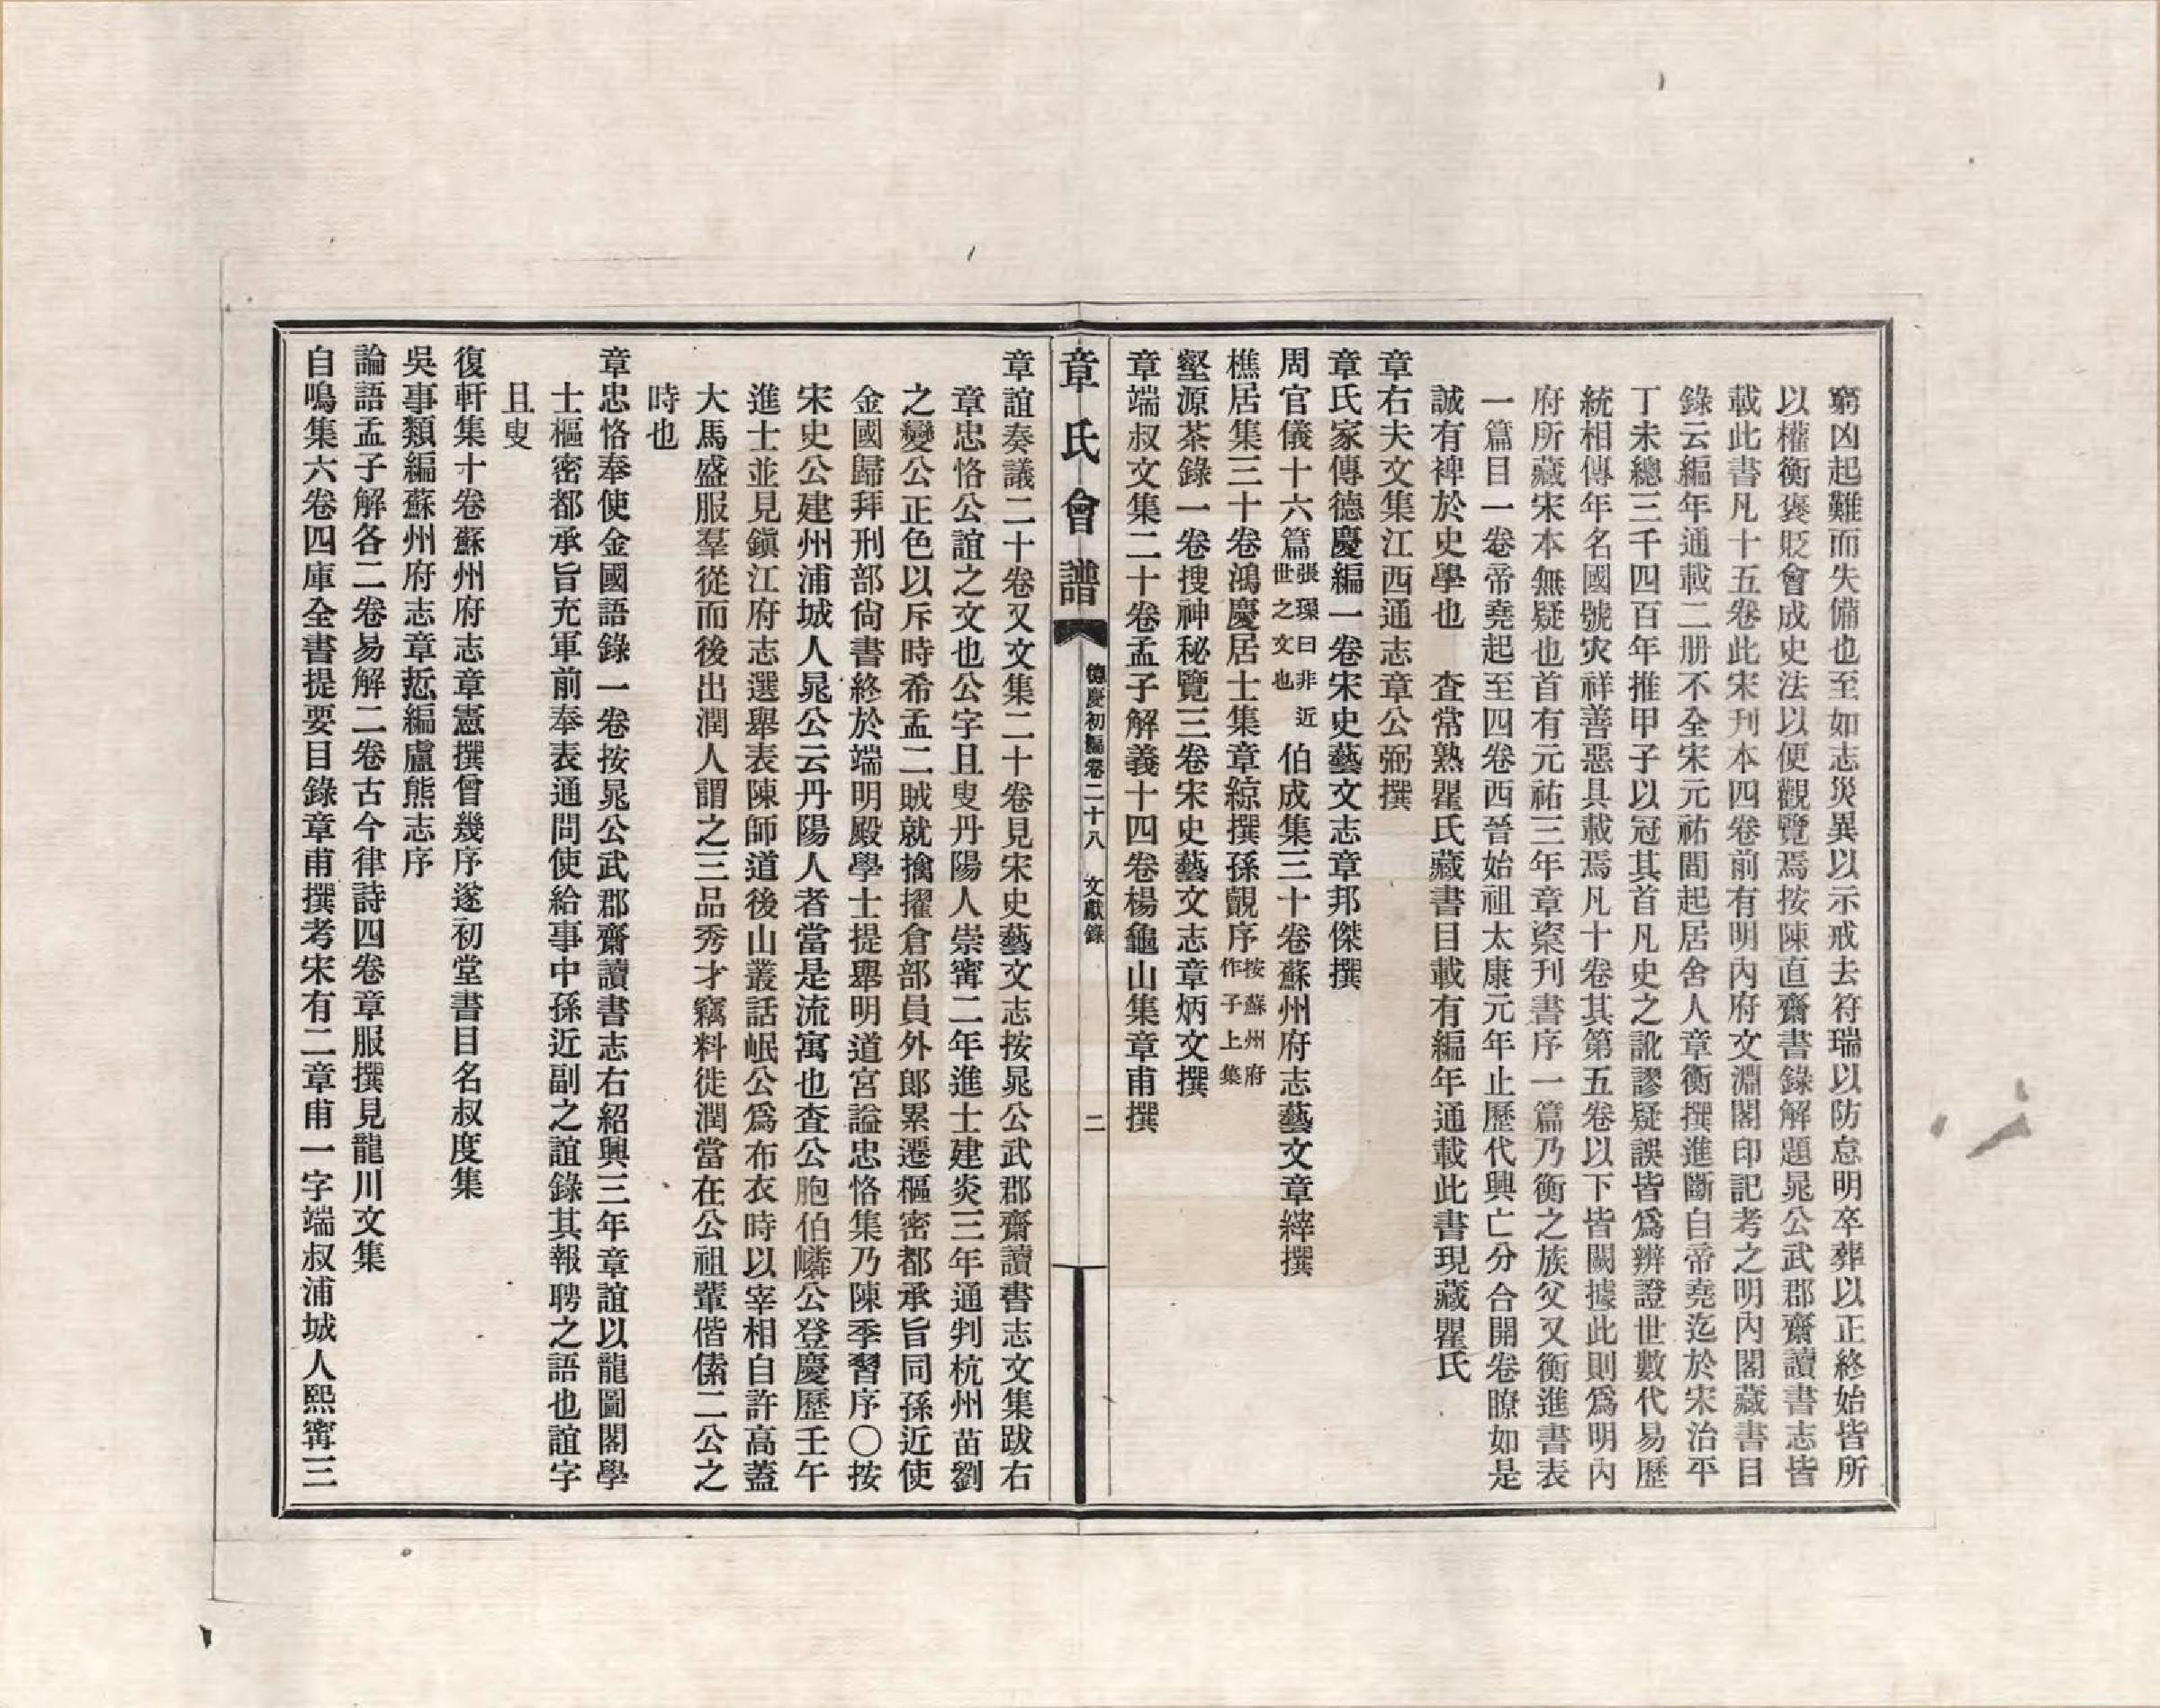 窮凶起難而失備也至如志災異以示戒去符瑞以防怠明卒葬以正終始皆所
以權衡褒貶會成史法以便觀覽焉按陳直齋書錄解題晁公武郡齋讀書志皆
載此書凡十五卷此宋刊本四卷前有明內府文淵閣印記考之明內閣藏書目
錄云編年通載二册不全宋元祐間起居舍人章衡撰進斷自帝堯迄於宋治平
丁未總三千四百年推甲子以冠其首凡史之訛謬疑誤皆爲辨證世數代易歷
統相傳年名國號灾祥善惡具載焉凡十卷其第五卷以下皆闕據此則爲明內
府所藏宋本無疑也首有元祐三年章楶刊書序一篇乃衡之族父又衡進書表
一篇目一卷帝堯起至四卷西晉始祖太康元年止歷代興亡分合開卷瞭如是
誠有裨於史學也　查常熟瞿氏藏書目載有編年通載此書現藏瞿氏
章右夫文集江西通志章公弼撰
章氏家傳德慶編一卷宋史藝文志章邦傑撰
周官儀十六篇張璪曰非近世之文也伯成集三十卷蘇州府志藝文章縡撰
樵居集三十卷鴻慶居士集章綡撰孫覿序按蘇州府作子上集
壑源茶錄一卷搜神秘覽三卷宋史藝文志章炳文撰
章端叔文集二十卷孟子解義十四卷楊龜山集章甫撰
章氏會譜　德慶初編卷二十八　文獻錄　二
章誼奏議二十卷又文集二十卷見宋史藝文志按晁公武郡齋讀書志文集跋右
章忠恪公誼之文也公字且叟丹陽人崇寗二年進士建炎三年通判杭州苗劉
之變公正色以斥時希孟二賊就擒擢倉部員外郞累遷樞密都承旨同孫近使
金國歸拜刑部尙書終於端明殿學士提舉明道宮謚忠恪集乃陳季習序〇按
宋史公建州浦城人晁公云丹陽人者當是流寓也查公胞伯嶙公登慶歷壬午
進士並見鎭江府志選舉表陳師道後山叢話岷公爲布衣時以宰相自許高蓋
大馬盛服羣從而後出潤人謂之三品秀才竊料徙潤當在公祖輩偕傃二公之
時也
章忠恪奉使金國語錄一卷按晁公武郡齋讀書志右紹興三年章誼以龍圖閣學
士樞密都承旨充軍前奉表通問使給事中孫近副之誼錄其報聘之語也誼字
且叟
復軒集十卷蘇州府志章憲撰曾幾序遂初堂書目名叔度集
吳事類編蘇州府志章悊編盧熊志序
論語孟子解各二卷易解二卷古今律詩四卷章服撰見龍川文集
自鳴集六卷四庫全書提要目錄章甫撰考宋有二章甫一字端叔浦城人熙寗三